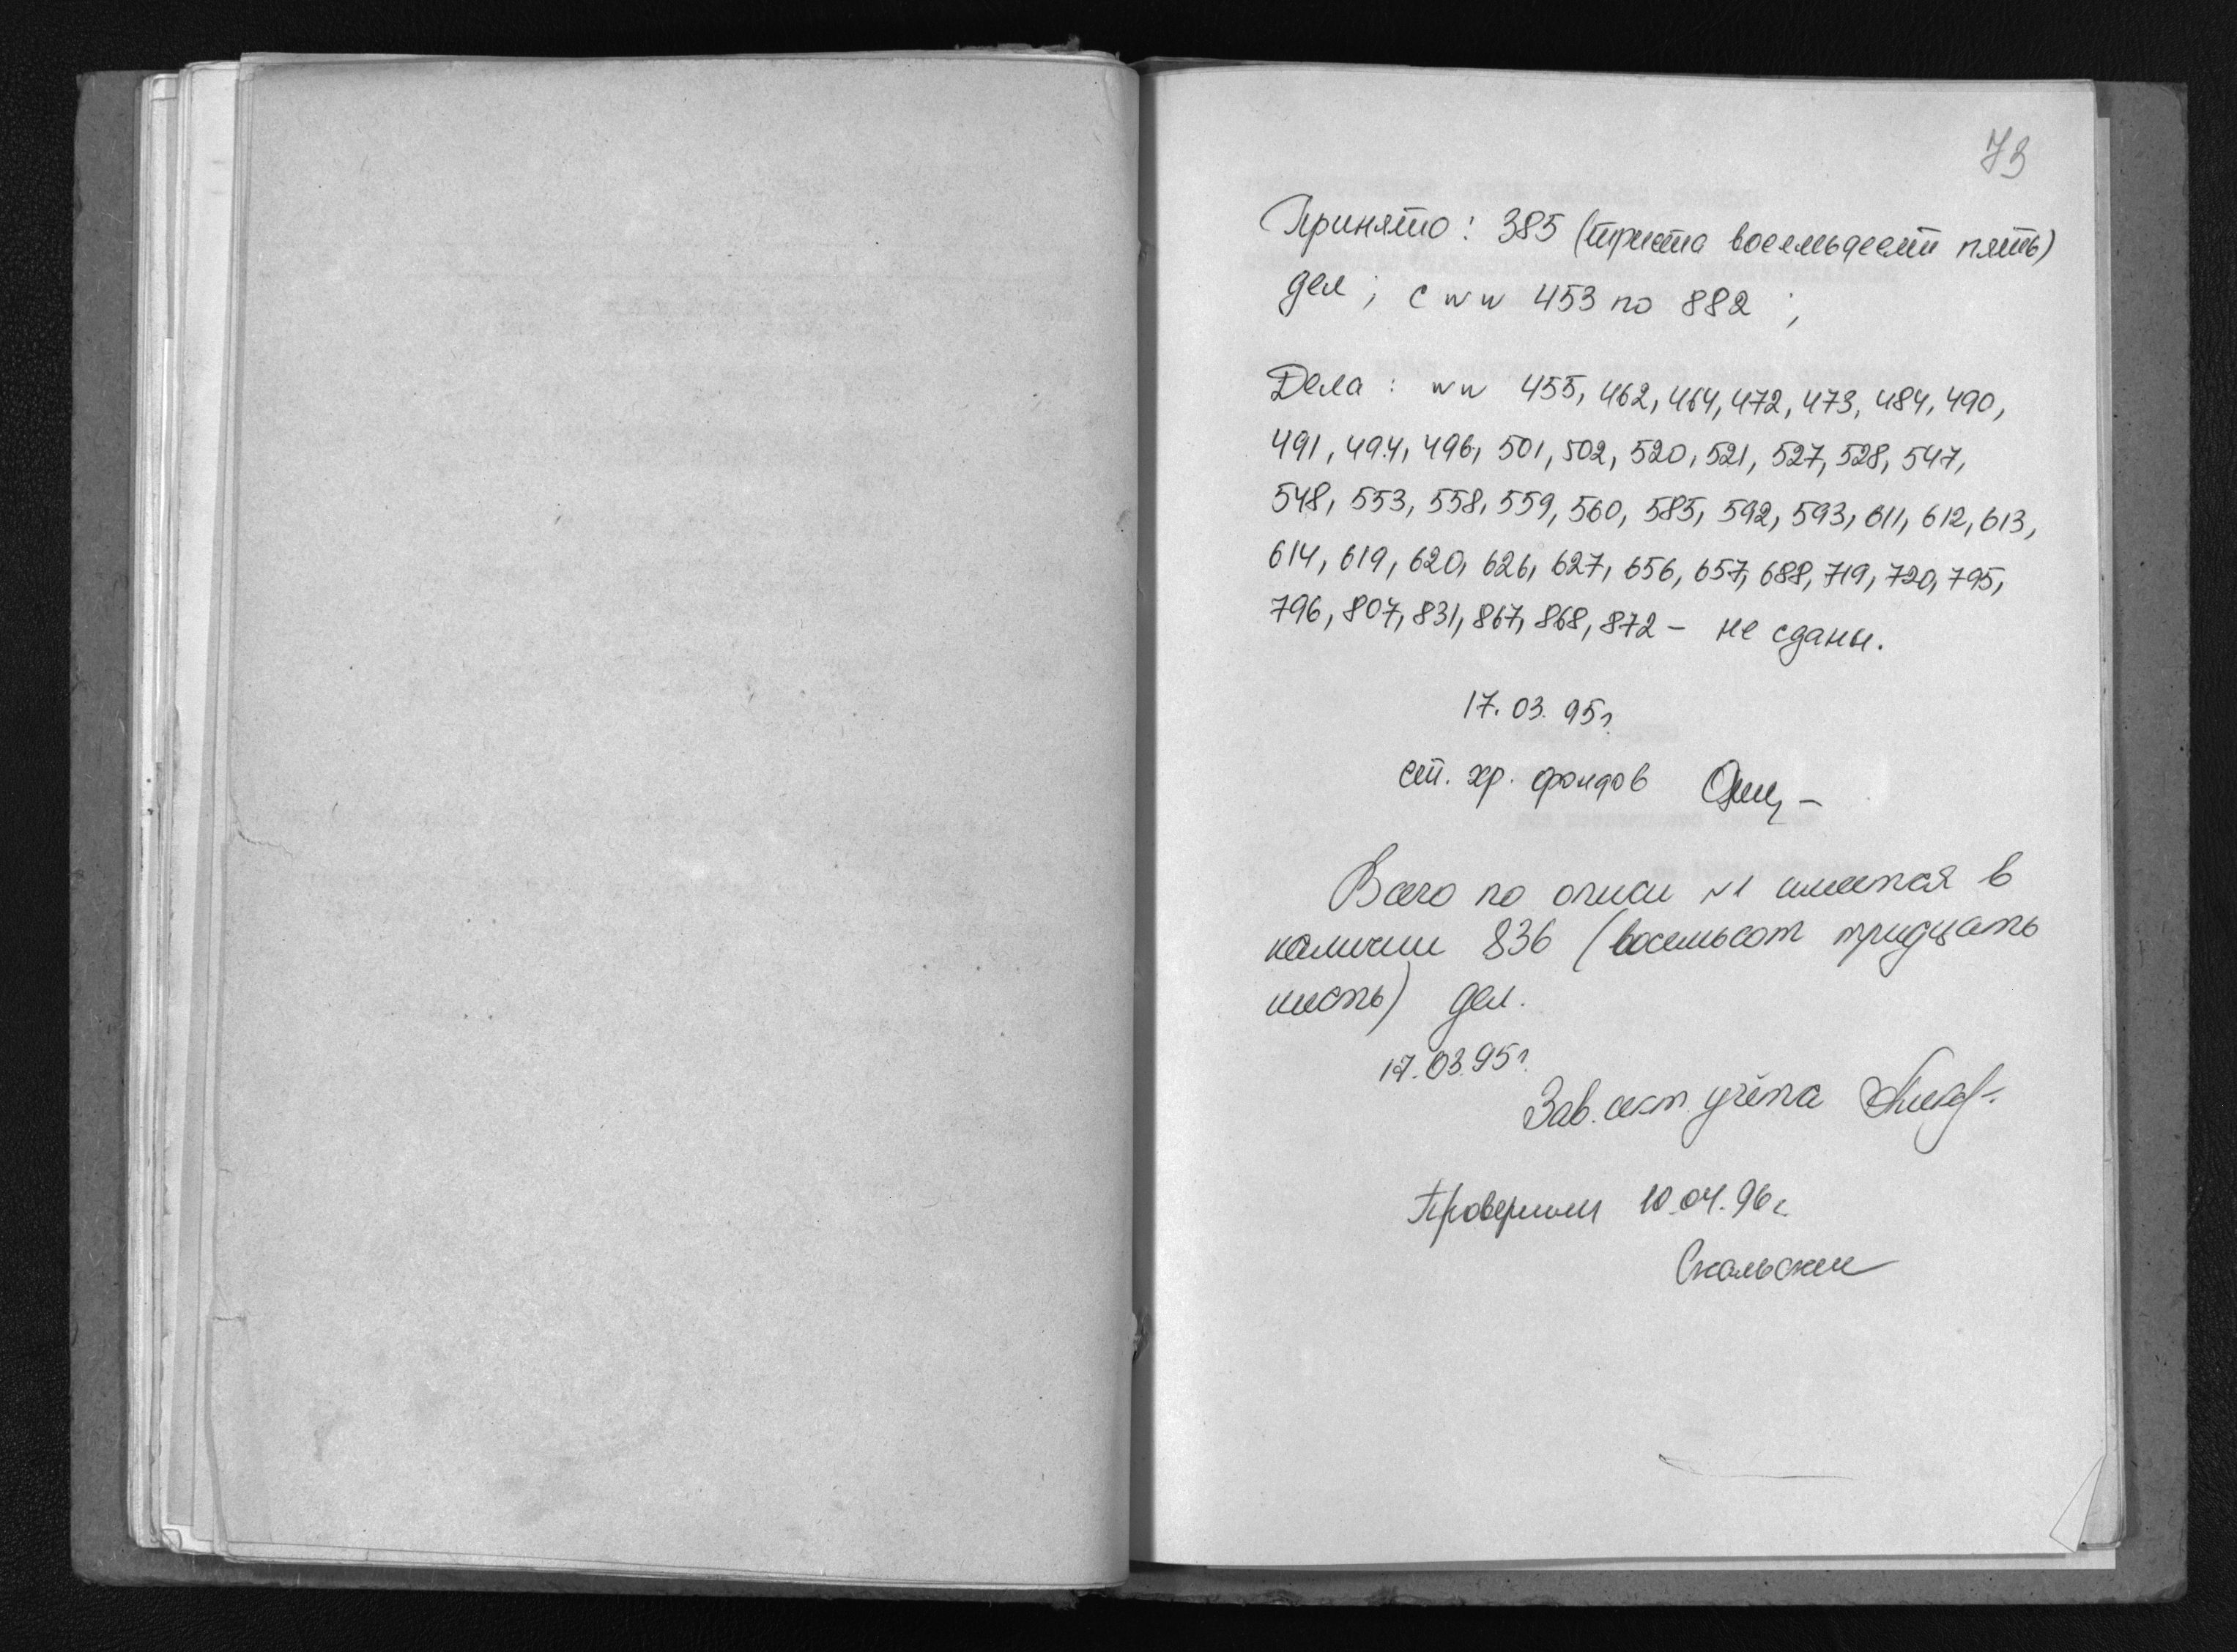 73
Принято: 385 (триста восемьдесят пять)
дел; с NN 453 по 882;
Дела: NN 455, 462, 464, 472, 473, 484, 490,
491, 494, 496, 501, 502, 520, 521, 527, 528, 547,
548, 553, 558, 559, 560, 585, 592, 593, 611, 612, 613,
614, 619, 620, 626, 627, 656, 657, 688, 719, 720, 795,
796, 807, 831, 867, 868, 872 – не сданы.
17.03.95г.
ст. хр. фондов
Всего по описи N1 имеется в
наличии 836 (восемьсот тридцать
шесть) дел.
17.03.95г.
Зав. сект. учёта
Проверили 10.04.96г.